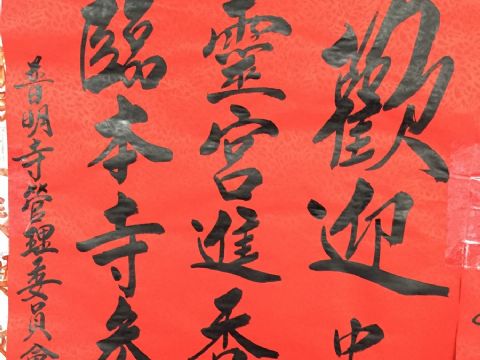 歡迎中
靈宮進香
臨本寺參
普明寺管理委員會